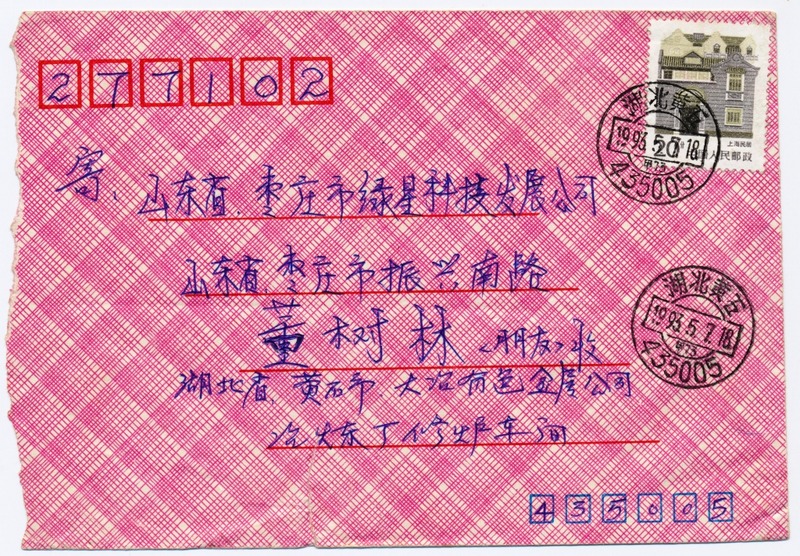 277102
上海民居
20 中国人民邮政
湖北黄石
1993.5.7.18
甲73
435005
寄:
山东省.枣庄市绿星科技发展公司
山东省枣庄市振兴南路
董树林(朋友)收
湖北省.黄石市.大冶有色金属公司
冶炼厂修炉车间
湖北黄石
1993.5.7.18
甲73
435005
435005